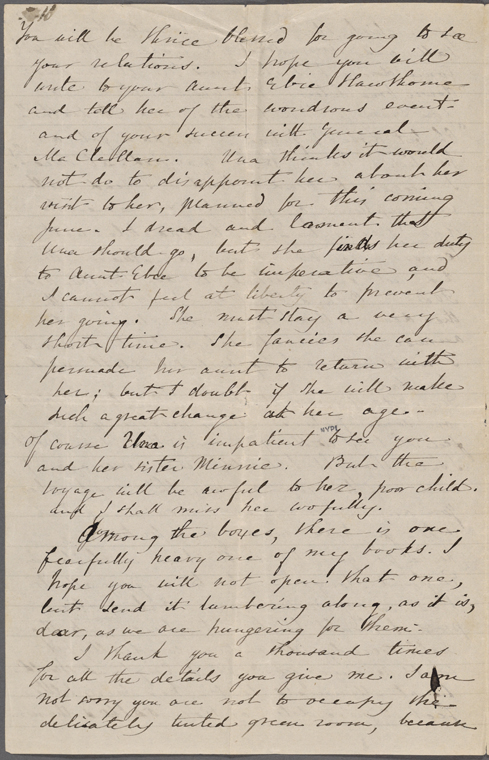 You will be thrice blessed for going to see
your relations. I hope you will
write to your aunt Ebie Hawthorne
and tell her of the wondrous event-
and of your success with General
McClellan. Una thinks it would
not do to disappoint her about her
visit to her, planned for this coming
June. I dread and lament that
Una should go, but she finds her duty
to Aunt Ebie to be imperative and
I cannot feel at liberty to prevent
her going. She must stay a very
short time. She fancies she can
persuade her aunt to return with
her; but I doubt if she will make
such a great change at her age.
of course Una is impatient to see you
and her sister Minnie. But the
voyage will be awful to her, poor child.
and I shall miss her woefully.
Among the boxes, there is one
fearfully heavy one of my books. I
hope you will not open that one,
but send it lumbering along, as it is,
dear, as we are hungering for them.
I thank you a thousand times
for all the details you give me. I am
not sorry you are not to occupy the
delicately tinted green room, because